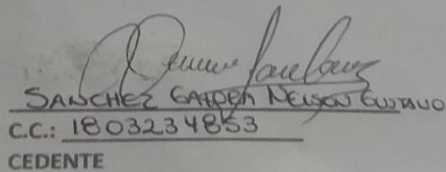 SANCHEZ GAIDER NELSON GUSTAVO
C.C.: 1803234853
CEDENTE